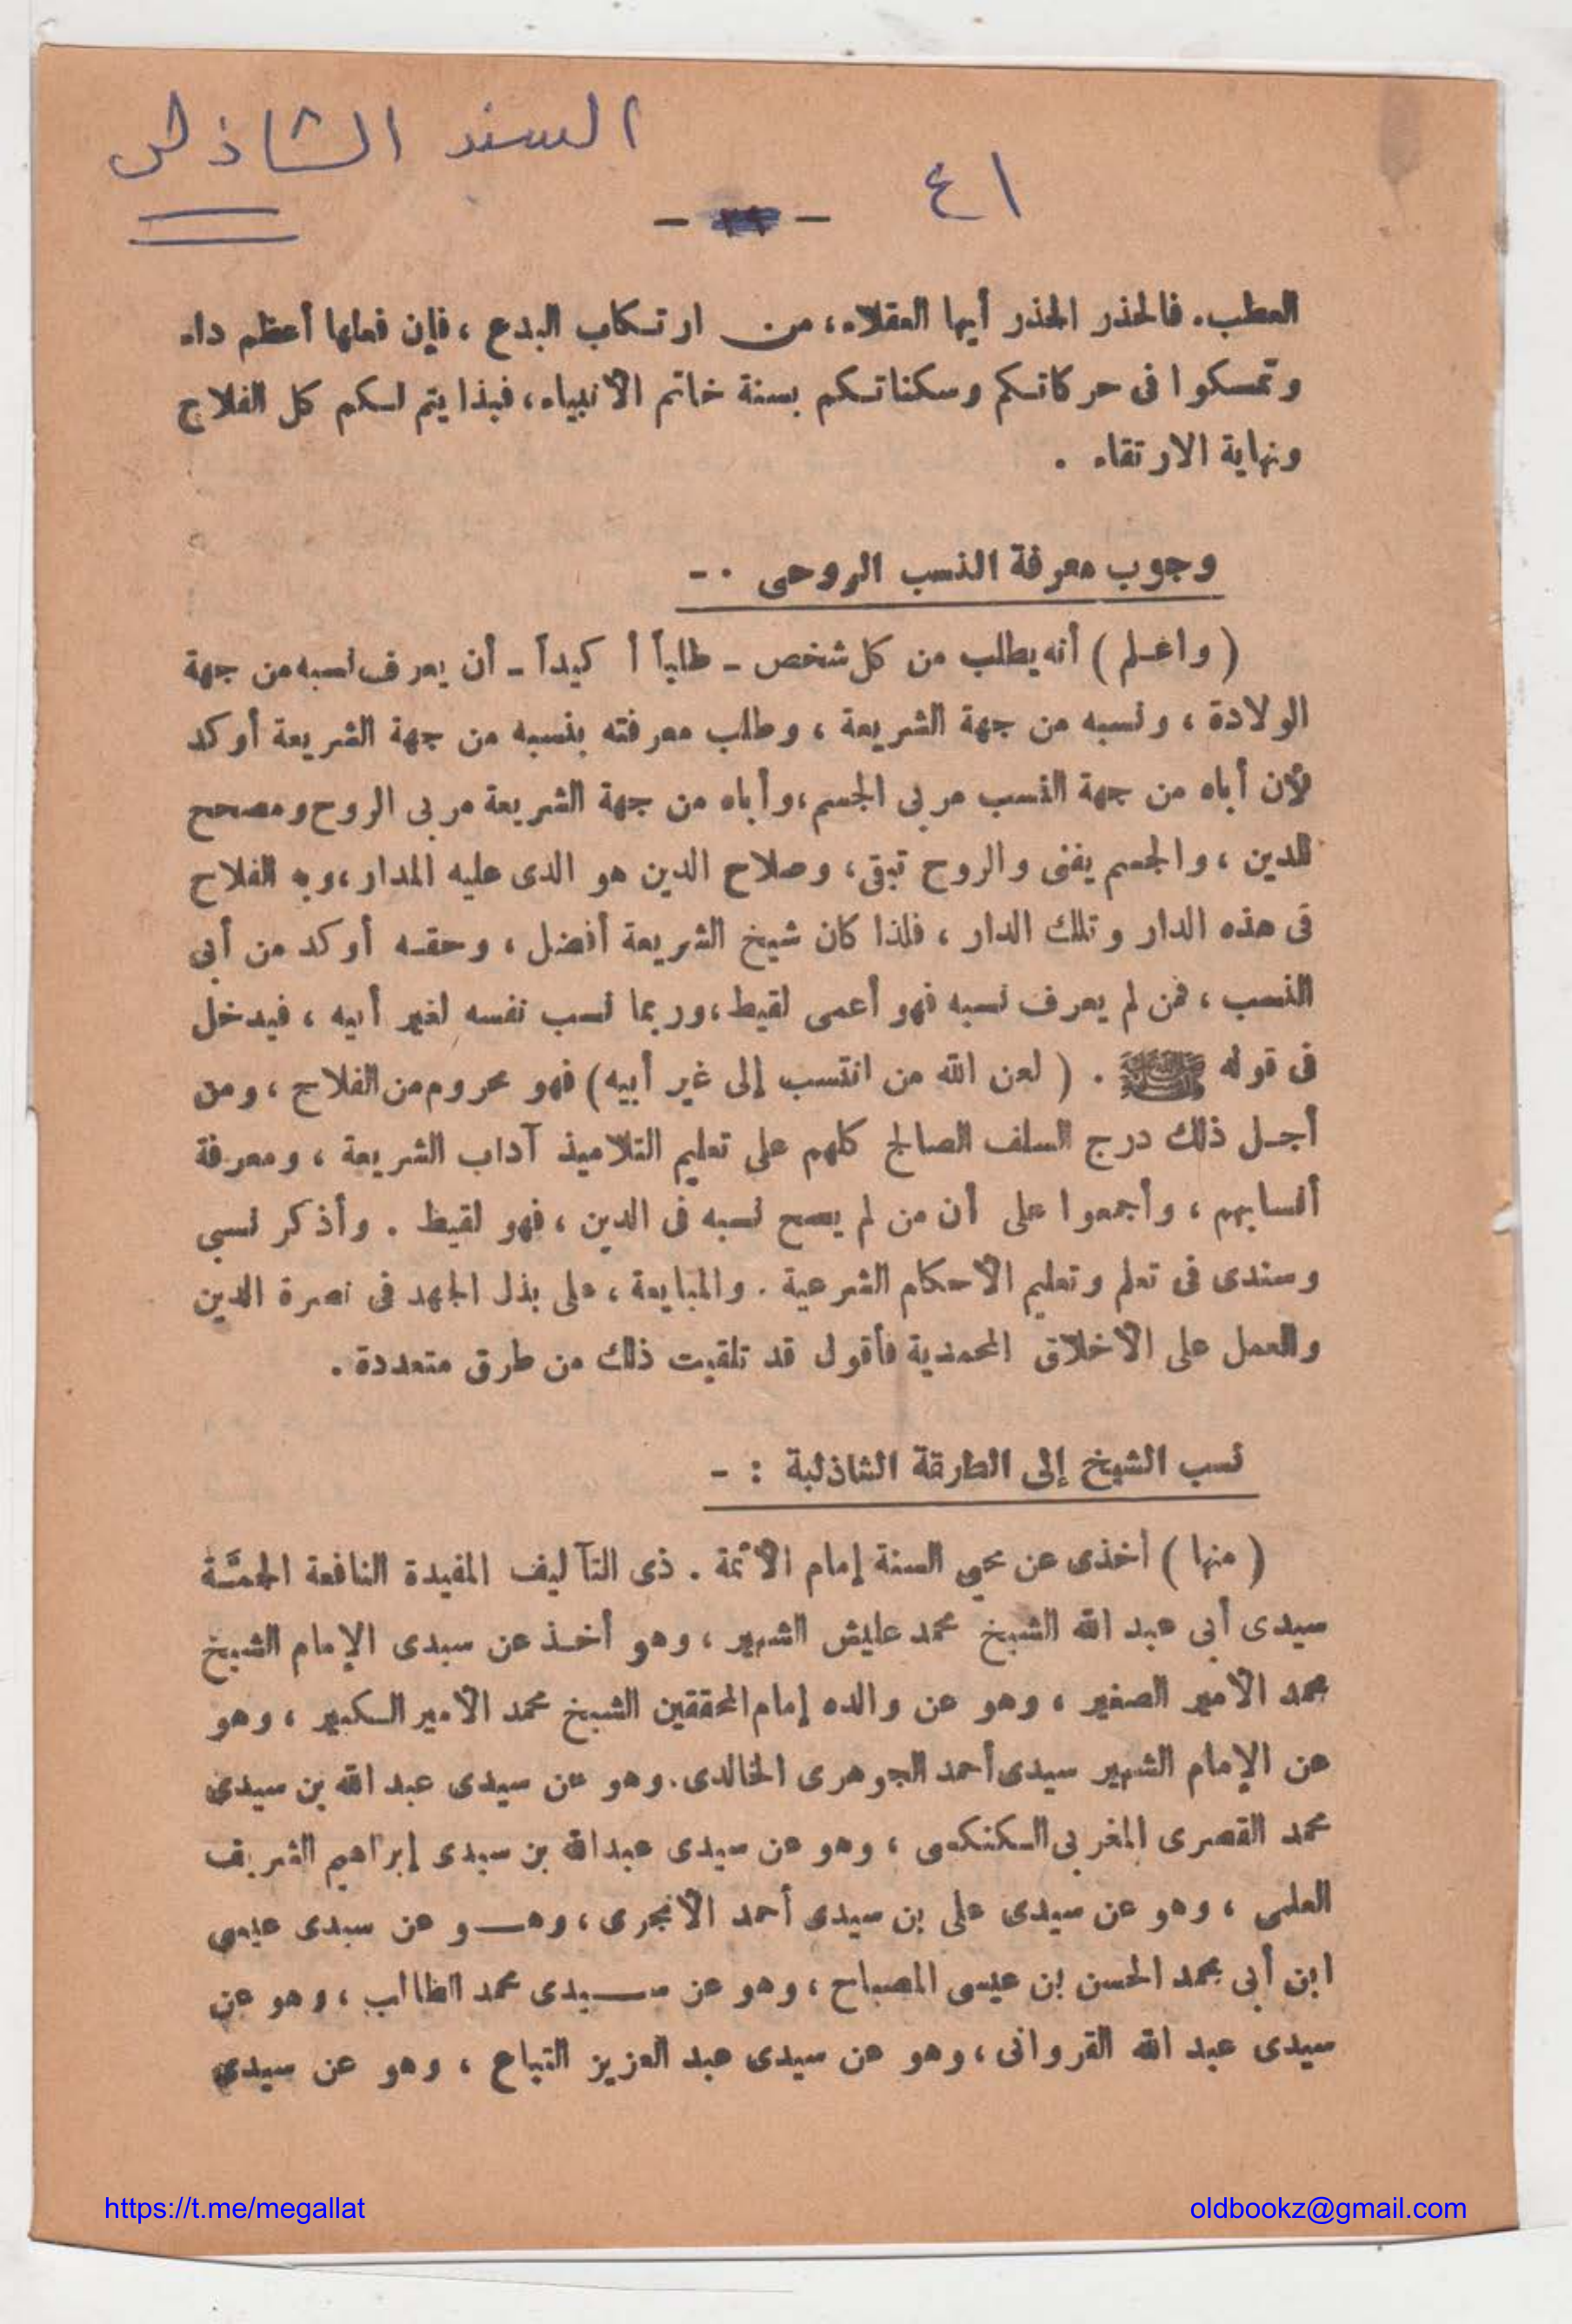 السند الشاذلى
٤١
العطب. فالحذر الحذر أيها العقلاء، من ارتكاب البدع ، فإن فعلها أعظم داء
وتمسكوا فى حركاتكم وسكناتكم بسنة خاتم الأنبياء، فبذا يتم لكم كل الفلاح
ونهاية الارتقاء .
وجوب معرفة النسب الروحى . -
( واعلم ) أنه يطلب من كل شخص - طلباً أكيداً - أن يعرف نسبه من جهة
الولادة ، ونسبه من جهة الشريعة ، وطلب معرفته بنسبه من جهة الشريعة أوكد
لأن أباه من جهة النسب مربى الجسم ،وأباه من جهة الشريعة مربى الروح ومصحح
للدين ، والجسم يفنى والروح تبقى، وصلاح الدين هو الذى عليه المدار ،وبه الفلاح
فى هذه الدار وتلك الدار ، فلذا كان شيخ الشريعة أفضل ، وحقه أوكد من أبى
النسب ، فمن لم يعرف نسبه فهو أعمى لقيط ،وربما نسب نفسه لغير أبيه ، فيدخل
فى قوله ﷺ . ( لعن الله من انتسب إلى غير أبيه) فهو محروم من الفلاح ، ومن
أجل ذلك درج السلف الصالح كلهم على تعليم التلاميذ آداب الشريعة ، ومعرفة
أنسابهم ، وأجمعوا على أن من لم يصح نسبه فى الدين ، فهو لقيط . وأذكر نسبى
وسندى فى تعلم وتعليم الأحكام الشرعية . والمبايعة ، على بذل الجهد فى نصرة الدين
والعمل على الأخلاق المحمدية فأقول قد تلقيت ذلك من طرق متعددة .
نسب الشيخ إلى الطارقة الشاذلية : -
( منها ) أخذى عن محي السنة إمام الأئمة . ذى التآليف المفيدة النافعة الجمَّة
سيدى أبى عبد الله الشيخ محمد عليش الشهير ، وهو أخذ عن سيدى الإمام الشيخ
محمد الأمير الصغير ، وهو عن والده إمام المحققين الشيخ محمد الأمير الكبير ، وهو
عن الإمام الشهير سيدى أحمد الجوهرى الخالدى. وهو عن سيدى عبد الله بن سيدى
محمد القصرى المغربى الكنكسى ، وهو عن سيدى عبدالله بن سيدى إبراهيم الشريف
العلمى ، وهو عن سيدى على بن سيدى أحمد الأنجرى ، وهو عن سيدى عيسى
ابن أبى محمد الحسن بن عيسى المصباح ، وهو عن سيدى محمد الطالب ، وهو عن
سيدى عبد الله القروانى ، وهو عن سيدى عبد العزيز التباع ، وهو عن سيدى
https://t.me/megallat
oldbookz@gmail.com